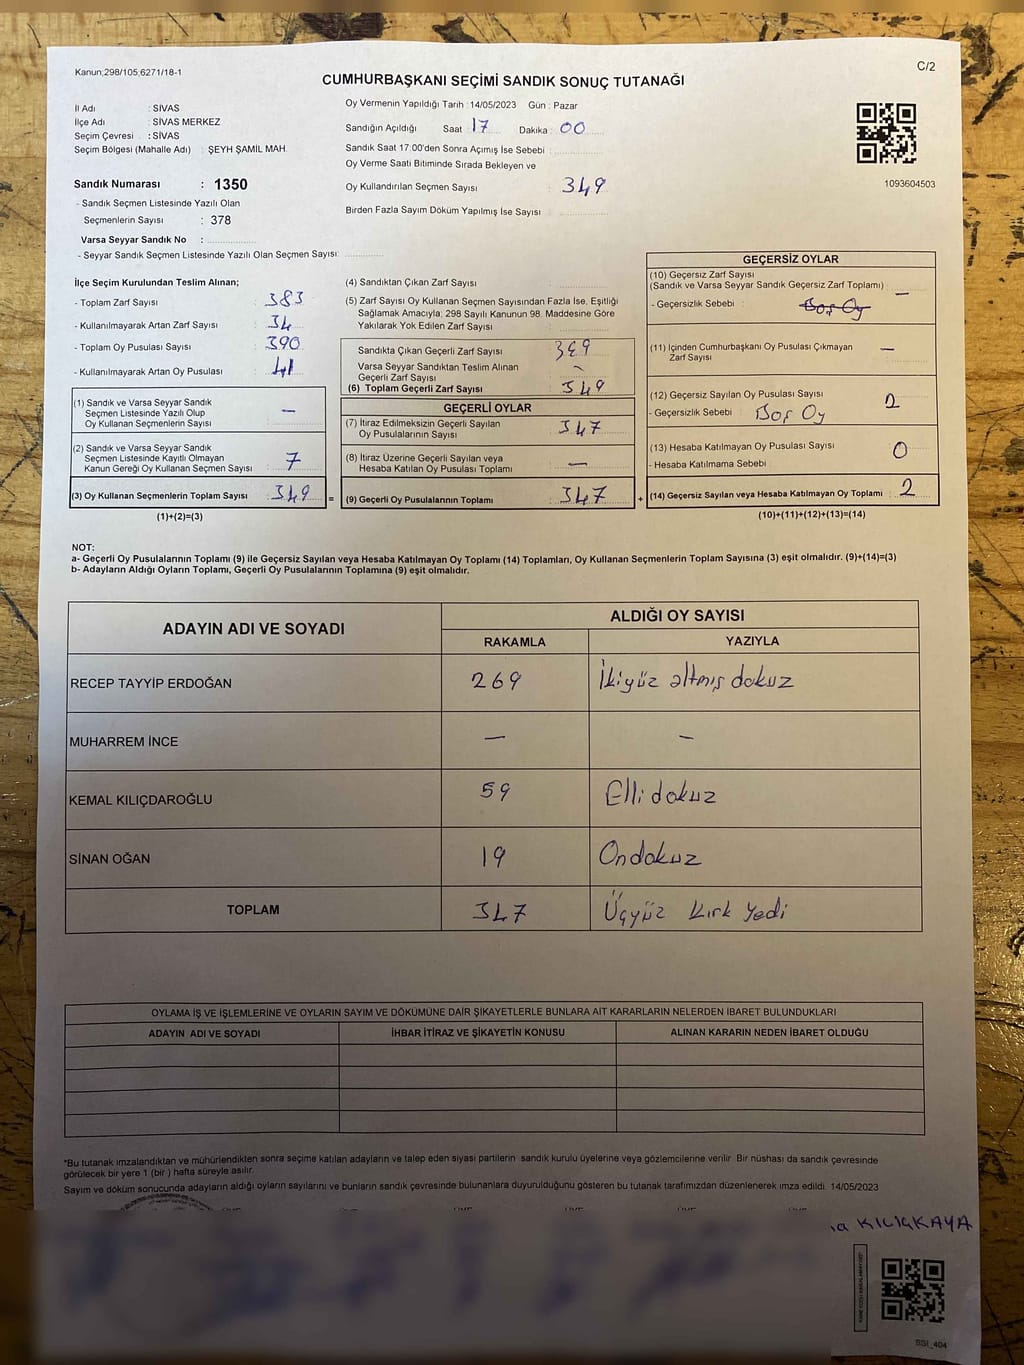 Kanun;298/105,6271/18-1
C/2
CUMHURBAŞKANI SEÇİMİ SANDIK SONUÇ TUTANAĞI
İl Adı : SİVAS
İlçe Adı : SİVAS MERKEZ
Seçim Çevresi : SİVAS
Seçim Bölgesi (Mahalle Adı) : ŞEYH ŞAMİL MAH.
Sandık Numarası : 1350
- Sandık Seçmen Listesinde Yazılı Olan
Seçmenlerin Sayısı : 378
Varsa Seyyar Sandık No :
- Seyyar Sandık Seçmen Listesinde Yazılı Olan Seçmen Sayısı:
Oy Vermenin Yapıldığı Tarih :14/05/2023 Gün : Pazar
Sandığın Açıldığı Saat 17 Dakika : 00
Sandık Saat 17:00'den Sonra Açımış İse Sebebi :
Oy Verme Saati Bitiminde Sırada Bekleyen ve
Oy Kullandırılan Seçmen Sayısı : 349
Birden Fazla Sayım Döküm Yapılmış İse Sayısı :
1093604503
İlçe Seçim Kurulundan Teslim Alınan;
- Toplam Zarf Sayısı : 383
- Kullanılmayarak Artan Zarf Sayısı : 34
- Toplam Oy Pusulası Sayısı : 390
- Kullanılmayarak Artan Oy Pusulası : 41
(1) Sandık ve Varsa Seyyar Sandık
Seçmen Listesinde Yazılı Olup
Oy Kullanan Seçmenlerin Sayısı : —
(2) Sandık ve Varsa Seyyar Sandık
Seçmen Listesinde Kayıtlı Olmayan
Kanun Gereği Oy Kullanan Seçmen Sayısı : 7
(3) Oy Kullanan Seçmenlerin Toplam Sayısı : 349 =
(1)+(2)=(3)
(4) Sandıktan Çıkan Zarf Sayısı :
(5) Zarf Sayısı Oy Kullanan Seçmen Sayısından Fazla İse, Eşitliği
Sağlamak Amacıyla; 298 Sayılı Kanunun 98. Maddesine Göre
Yakılarak Yok Edilen Zarf Sayısı :
Sandıkta Çıkan Geçerli Zarf Sayısı : 349
Varsa Seyyar Sandıktan Teslim Alınan
Geçerli Zarf Sayısı :
(6) Toplam Geçerli Zarf Sayısı : 349
GEÇERLİ OYLAR
(7) İtiraz Edilmeksizin Geçerli Sayılan
Oy Pusulalarının Sayısı : 347
(8) İtiraz Üzerine Geçerli Sayılan veya
Hesaba Katılan Oy Pusulası Toplamı : —
(9) Geçerli Oy Pusulalarının Toplamı : 347 +
GEÇERSİZ OYLAR
(10) Geçersiz Zarf Sayısı
(Sandık ve Varsa Seyyar Sandık Geçersiz Zarf Toplamı) : —
- Geçersizlik Sebebi : Boş Oy
(11) İçinden Cumhurbaşkanı Oy Pusulası Çıkmayan
Zarf Sayısı : —
(12) Geçersiz Sayılan Oy Pusulası Sayısı : 2
- Geçersizlik Sebebi : Boş Oy
(13) Hesaba Katılmayan Oy Pusulası Sayısı : 0
- Hesaba Katılmama Sebebi :
(14) Geçersiz Sayılan veya Hesaba Katılmayan Oy Toplamı : 2
(10)+(11)+(12)+(13)=(14)
NOT:
a- Geçerli Oy Pusulalarının Toplamı (9) ile Geçersiz Sayılan veya Hesaba Katılmayan Oy Toplamı (14) Toplamları, Oy Kullanan Seçmenlerin Toplam Sayısına (3) eşit olmalıdır. (9)+(14)=(3)
b- Adayların Aldığı Oyların Toplamı, Geçerli Oy Pusulalarının Toplamına (9) eşit olmalıdır.
ADAYIN ADI VE SOYADI ALDIĞI OY SAYISI
RAKAMLA YAZIYLA
RECEP TAYYİP ERDOĞAN 269 İkiyüz altmış dokuz
MUHARREM İNCE — —
KEMAL KILIÇDAROĞLU 59 Elli dokuz
SİNAN OĞAN 19 Ondokuz
TOPLAM 347 Üçyüz Kırk Yedi
OYLAMA İŞ VE İŞLEMLERİNE VE OYLARIN SAYIM VE DÖKÜMÜNE DAİR ŞİKAYETLERLE BUNLARA AİT KARARLARIN NELERDEN İBARET BULUNDUKLARI
ADAYIN ADI VE SOYADI İHBAR İTİRAZ VE ŞİKAYETİN KONUSU ALINAN KARARIN NEDEN İBARET OLDUĞU
*Bu tutanak imzalandıktan ve mühürlendikten sonra seçime katılan adayların ve talep eden siyasi partilerin sandık kurulu üyelerine veya gözlemcilerine verilir. Bir nüshası da sandık çevresinde
görülecek bir yere 1 (bir ) hafta süreyle asılır.
Sayım ve döküm sonucunda adayların aldığı oyların sayılarını ve bunların sandık çevresinde bulunanlara duyurulduğunu gösteren bu tutanak tarafımızdan düzenlenerek imza edildi. 14/05/2023
KILIÇKAYA
SSİ_404